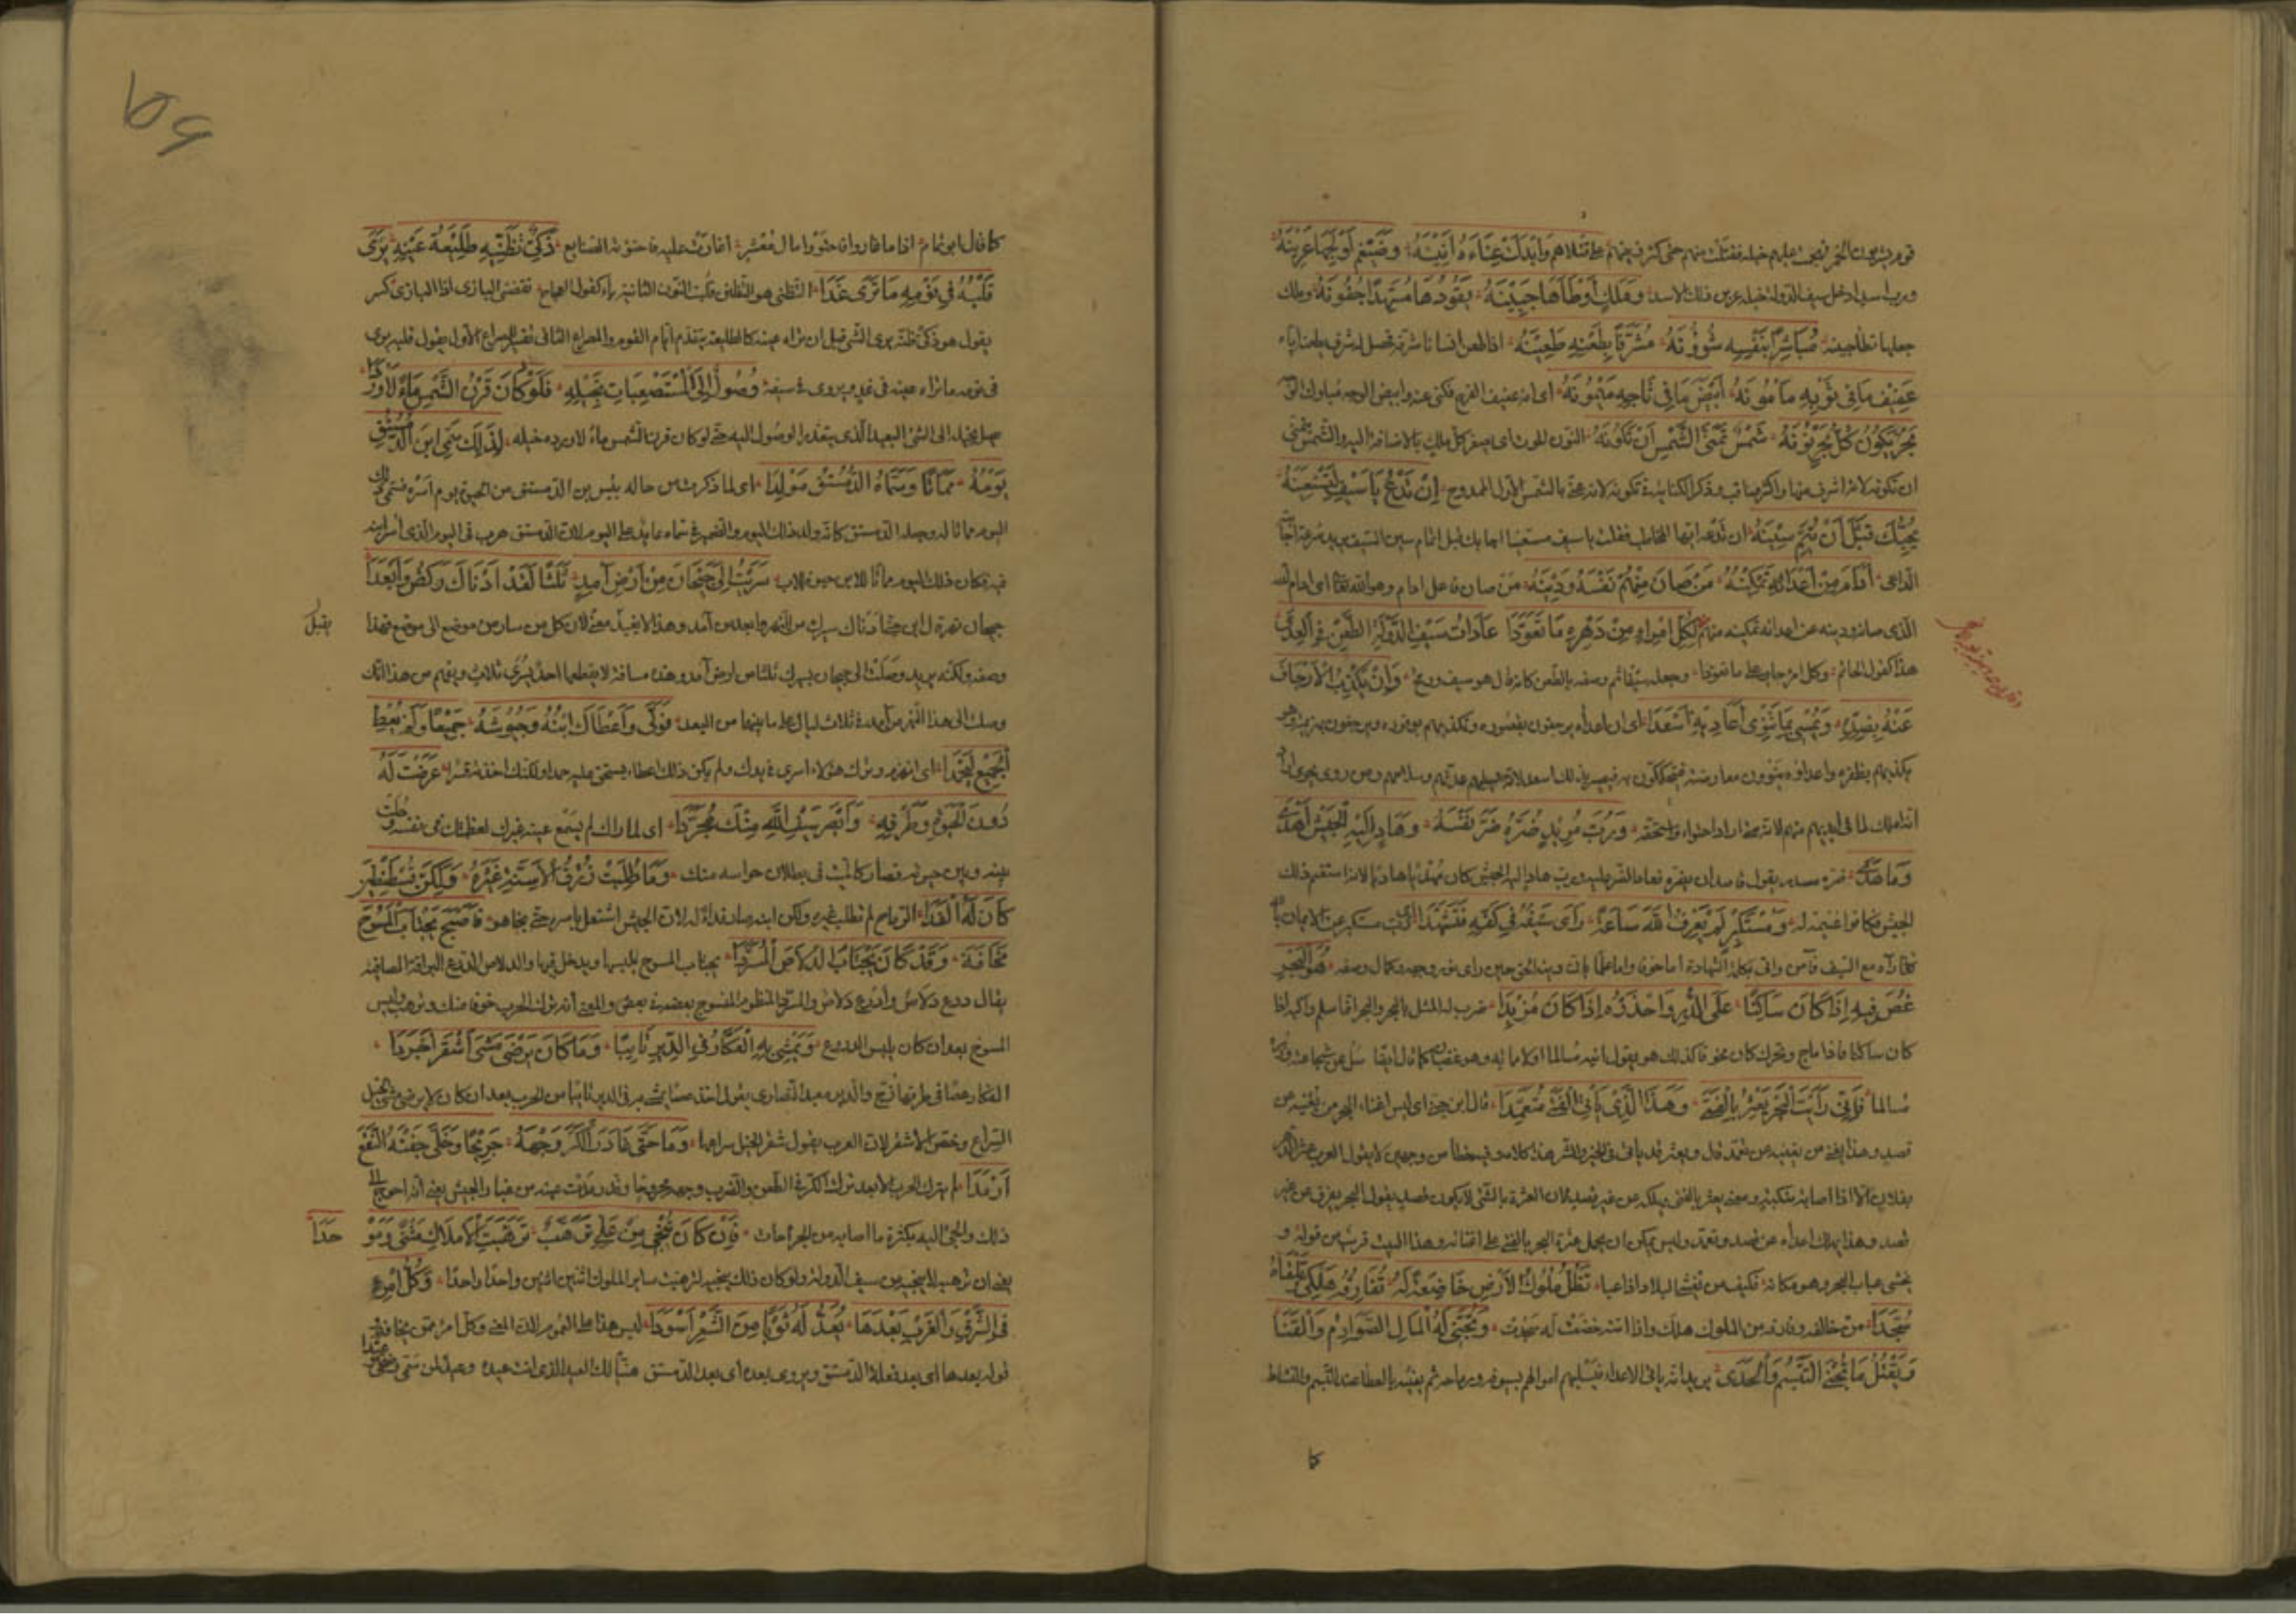 قوم يشربون الخمر فصبحت عليهم خيله فقتلت منهم حتى كثر رنينهم على قتلاهم وَأَبْدَلَتْ غِنَاءَهُ أَنِينَهُ وَضَيْغَمٍ أَوْلَجَهَا عَرِينَهُ
ورب اسد ادخل سيف الدولة خيله عرين ذلك الاسد وَمَلِكٍ أَوْطَأَهَا جَبِينَهُ يَقُودُهَا مُسَهِّدًا جُفُونَهُ وملك
جعلها تطأ جبينه مُبَاشِرًا بِنَفْسِهِ شُؤُونَهُ مُشَرِّفًا بِطَعْنِهِ طَعِينَهُ اذا طعن انسانا شرفه فحصل له شرف بطعنه اياه
عَفِيفَ مَا فِي ثَوْبِهِ مَأْمُونَهُ أَبْيَضَ مَا فِي تَاجِهِ مَيْمُونَهُ اى انه عفيف الفرج فكنى عنه وابيض الوجه مبارك
بَحْرٌ يَكُونُ كُلُّ بَحْرٍ نُونَهُ شَمْسٌ تَمَنَّى الشَّمْسُ أَنْ تَكُونَهُ النون الحوت اى يصغر كل ملك بالاضافة اليه والشمس تتمنى
ان تكونه لانه اشرف منها واكثر مناقب وذكر الكناية فى تكونه لانه عنى بالشمس الاول الممدوح إِنْ تَدْعُ يَا سَيْفُ لِتَسْتَعِينَهُ
يُجِبْكَ قَبْلَ أَنْ تُتِمَّ سِينَهُ ان تدعه ايها المخاطب فقلت يا سيف مستعينا اجابك قبل اتمام سين السيف يريد سرعة اجابته
الداعى أَدَامَ مِنْ أَعْدَائِهِ تَمْكِينَهُ مَنْ صَانَ مِنْهُمْ نَفْسَهُ وَدِينَهُ من صان فاعل ادام وهو الله تعالى اى ادام الله
الذى صانه ودينه عن اعدائه تمكينه منهم لِكُلِّ امْرِئٍ مِنْ دَهْرِهِ مَا تَعَوَّدَا عَادَاتُ سَيْفِ الدَّوْلَةِ الطَّعْنُ فِي الْعِدَى
هذا كقول الحاتم وكل امرئ جار على ما تعودا وجعله سيفا ثم وصفه بالطعن كانه قال هو سيف ورمح وَأَنْ يُكْذِبَ الْإِرْجَافَ
عَنْهُ بِضِدِّهِ وَيُمْسِي بِمَا تَنْوِي أَعَادِيهِ أَسْعَدَا اى ان اعداءه يرجفون بقصوره فيكذبهم بوفوره ويرجفون بهزيمته وهو
يكذبهم بظفره واعداؤه ينوون معارضته فيتحككون به فيصير بذلك اسعد لانه يسلبهم عدتهم وسلاحهم ومن روى يحوى اراد
انه املك لما فى ايديهم منهم لانه متى اراد احتواه واستحقه وَرُبَّ مُرِيدٍ ضَرَّهُ ضَرَّ نَفْسَهُ وَهَادٍ إِلَيْهِ الْجَيْشَ أَهْدَى
وَمَا هَدَى ضره مصدر يقول قاصدا ان يضره فعاد الضر عليه ورب هاد اليه الجيش كان مهديا لا هاديا لانه استغنم ذلك
الجيش فكانوا غنيمة له وَمُسْتَكْبِرٍ لَمْ يَعْرِفِ اللَّهَ سَاعَةً رَأَى سَيْفَهُ فِي كَفِّهِ فَتَشَهَّدَا اى رب مستكبر عن الايمان بالله
فلما رآه مع السيف آمن واتى بكلمة الشهادة اما خوفا واما علما بان دينه الحق حين راى نور وجهه وكمال وصفه هُوَ الْبَحْرُ
غُصْ فِيهِ إِذَا كَانَ سَاكِنًا عَلَى الدُّرِّ وَاحْذَرْهُ إِذَا كَانَ مُزْبِدَا ضرب له المثل بالبحر والبحر انما يسلم راكبه اذا
كان ساكنا فاذا ماج وتحرك كان مخوفا كذلك هو يقول ائته مسالما ولا تأته وهو غضبان كما قال ايضا سل عن شجاعته وزره
مسالما فَإِنِّي رَأَيْتُ الْبَحْرَ يَعْثُرُ بِالْفَتَى وَهَذَا الَّذِي يَأْتِي الْفَتَى مُتَعَمِّدَا قال ابن جنى اى ليس اغناء البحر من يغنيه عن
قصد وهذا يغنى من يغنيه عن تعمد قال ويعثر قد يأتى فى الخير والشر هذا كلامه وقد اخطأ من وجهين لا يقول العرب عثر الدهر
بفلان الا اذا اصابه بنكبة ومعنى يعثر بالفتى يهلكه من غير قصد لان العثرة بالشئ لا يكون عن قصد يقول البحر يغرق من غير
قصد وهذا يهلك اعداءه عن قصد وتعمد وليس يمكن ان يحمل عثرة البحر بالفتى على اغنائه وهذا البيت قريب من قوله و
يخشى عباب البحر وهو مكانه فكيف بمن يغشى البلاد اذا عبا تَظَلُّ مُلُوكُ الْأَرْضِ خَاضِعَةً لَهُ تُفَارِقُهُ هَلْكَى وَتَلْقَاهُ
سُجَّدَا من خالفه وفارقه من الملوك هلك واذا اتته خضعت له سجدت وَتُحْيِي لَهُ الْمَالَ الصَّوَارِمُ وَالْقَنَا
وَيَقْتُلُ مَا تُحْيِي التَّبَسُّمُ وَالْجَدَى يريد انه يأتى الاعداء فيسلبهم اموالهم بسيوفه ورماحه ثم يفنيه بالعطاء عند التبسم والنشاط
كما
كما قال ابو تمام اذا ما اغاروا فاحتووا مال معشر اغارت عليه فاحتوته الصنايع ذَكِيٌّ تَظَنِّيهِ طَلِيعَةُ عَيْنِهِ يَرَى
قَلْبُهُ فِي يَوْمِهِ مَا تَرَى غَدَا التظنى هو التظنن قلبت النون الثانية ياء كقول العجاج تقضى البازى اذا البازى كسر
يقول هو ذكى ظنه يرى الشئ قبل ان تراه عينه كالطليعة يتقدم امام القوم والمصراع الثانى تفسير المصراع الاول يقول قلبه يرى
فى يومه ما تراه عينه فى غد ويروى وَصُولٌ إِلَى الْمُسْتَصْعَبَاتِ بِخَيْلِهِ فَلَوْ كَانَ قَرْنُ الشَّمْسِ مَاءً لَأَوْرَدَا
يصل بخيله الى الشئ البعيد الذى يتعذر الوصول اليه حتى لو كان قرن الشمس ماء لاورده خيله لِذَلِكَ سَمَّى ابْنُ الدُّمُسْتُقِ
يَوْمَهُ مَمَاتًا وَسَمَّاهُ الدُّمُسْتُقُ مَوْلِدَا اى لما ذكرت من حاله يئس ابن الدمستق من الحيوة يوم اسره فسمى ذلك
اليوم مماتا له وجعله الدمستق كانه ولد ذلك اليوم والضمير فى سماه عائد على اليوم لان الدمستق هرب فى اليوم الذى اسر ابنه
فيه فكان ذلك اليوم مماتا للابن حيوة للاب سَرَيْتَ إِلَى جَيْحَانَ مِنْ أَرْضِ آمِدٍ ثَلَاثًا لَقَدْ أَدْنَاكَ رَكْضٌ وَأَبْعَدَا
جيحان نهر قال ابن جنى ادناك سيرك من النهر وابعد من آمد وهذا لا يفيد معنى لان كل من سار من موضع الى موضع فهذا
يقبل
وصفه ولكنه يريد وصلت الى جيحان بسيرك ثلثا من ارض آمد وهذه مسافة لا يقطعها احد بسرى ثلاث ويفهم من هذا انك
وصلت الى هذا النهر من آمد فى ثلاث ليال على ما بينهما من البعد فَوَلَّى وَأَعْطَاكَ ابْنَهُ وَجُيُوشَهُ جَمِيعًا وَلَمْ يُعْطِ
الْجَمِيعَ لِيُحْمَدَا اى انهزم وترك هؤلاء اسرى فى يدك ولم يكن ذلك اعطاء يستحق عليه حمدا ولكنك اخذته قسرا عَرَضْتَ لَهُ
دُونَ الْحَيَوةِ وَطَرْفِهِ وَأَبْصَرَ سَيْفَ اللَّهِ مِنْكَ مُجَرَّدَا اى لما رآك لم يسع عينه غيرك لعظمتك فى نفسه وحلت
بينه وبين حيوته فصار كالميت فى بطلان حواسه منك وَمَا طَلَبَتْ زُرْقُ الْأَسِنَّةِ غَيْرَهُ وَلَكِنَّ قُسْطَنْطِينَ
كَانَ لَهُ الْفِدَا الرماح لم تطلب غيره ولكن ابنه صار فداء له لان الجيش اشتغل باسره حتى نجا هو فَأَصْبَحَ يَجْتَابُ الْمُسُوحَ
مَخَافَةً وَقَدْ كَانَ يَجْتَابُ الدِّلَاصَ الْمُسَرَّدَا يجتاب المسوح يلبسها ويدخل فيها والدلاص الدرع البراقة الصافية
يقال درع دلاص وادرع دلاص والمسرد المنظوم المنسوج بعضه فى بعض والمعنى انه ترك الحرب خوفا منك وترهب ولبس
المسوح بعد ان كان يلبس الدروع وَيَمْشِي بِهِ الْعُكَّازُ فِي الدَّيْرِ تَائِبًا وَمَا كَانَ يَرْضَى مَشْيَ أَشْقَرَ أَجْرَدَا
العكاز عصا فى طرفها زج والدير معبد النصارى يقول اخذ عصا يمشى به فى الدير تائبا من الحرب بعد ان كان لا يرضى مشى الخيل
السراع وخص الاشقر لان العرب يقول شقر الخيل سراعها وَمَا تَابَ حَتَّى غَادَرَ الْكَرُّ وَجْهَهُ جَرِيحًا وَخَلَّى جَفْنَهُ النَّقْعُ
أَرْمَدَا لم يترك الحرب الا بعد ترك الكر فى الطعن والضرب وجهه مجروحا وقد رمدت عينه من غبار الجيش يعنى انه احوج الى
ذلك والجئ اليه بكثرة ما اصابه من الجراحات فَإِنْ كَانَ يُنْجِي مِنْ عَلِيٍّ تَرَهُّبٌ تَرَهَّبَتِ الْأَمْلَاكُ مَثْنًى وَمَوْ
حَدَا
يعنى ان ترهبه لا ينجيه من سيف الدولة ولو كان ذلك ينجيه لترهبت سائر الملوك اثنين اثنين واحدا واحدا وَكُلُّ امْرِئٍ
فِي الشَّرْقِ وَالْغَرْبِ بَعْدَهَا يُعِدُّ لَهُ ثَوْبًا مِنَ الشَّعْرِ أَسْوَدَا ليس هذا على العموم لان المعنى وكل امرئ ممن يخافه
قوله بعدها اى بعد فعلة الدمستق ويروى بعده اى بعد الدمستق هنيئا لك العيد الذى انت عيده وعيد لمن سمى وضحى وعيدا